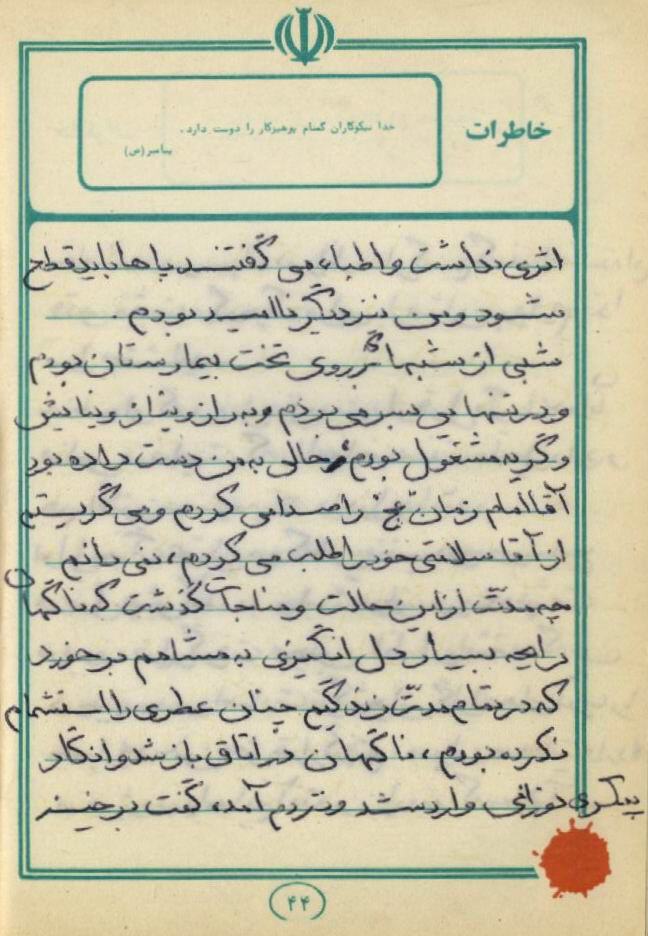 خاطرات
خدا نیکوکاران گمنام پرهیزکار را دوست دارد.
پیامبر(ص)
اثری نداشت و اطباء می گفتند پاها باید قطع
شود و من نیز دیگر ناامید بودم.
شبی از شبها که بر روی تخت بیمارستان بودم
و در تنهایی بسر می بردم و به راز و نیاز و نیایش
و گریه مشغول بودم، حالی به من دست داده بود
آقا امام زمان "عج" را صدا می کردم و می گریستم
از آقا سلامتی خود را طلب می کردم، نمی دانم
چه مدت از این حالت و مناجات گذشت که ناگهان
رایحه بسیار دل انگیزی به مشامم بر خورد
که در تمام مدت زندگیم چنان عطری را استشمام
نکرده بودم، ناگهان در اتاق باز شد و انگار
پیکری نورانی وارد شد و نزدم آمد، گفت برخیز
۴۴